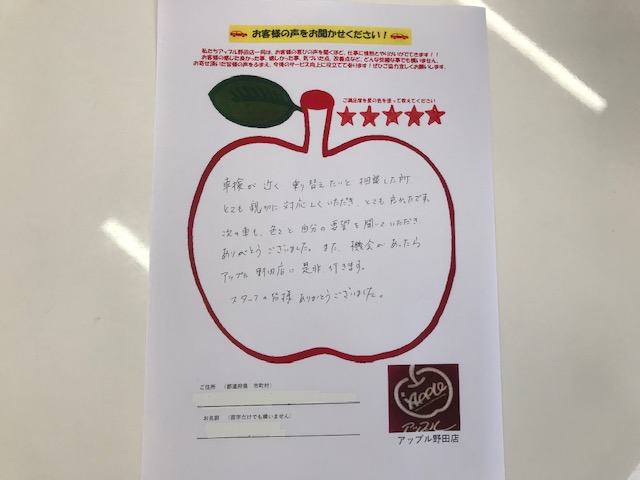 お客様の声をお聞かせください！
私たちアップル野田店一同は、お客様の喜びの声を聞くほど、仕事に情熱とやりがいがでてきます！！
お客様の感じた良かった事、嬉しかった事、気づいた点、改善点など、どんな些細な事でも構いません。
お寄せ頂いたお客様の声をふまえ、今後のサービス向上に役立てて参ります！ぜひご協力宜しくお願いします。
ご満足度を星の色を塗って教えてください
車検が近く 乗り替えたいと相談した所
とても親切に対応していただき、とても良かったです。
次の車も、色々と自分の要望を聞いていただき
ありがとうございました。また、機会があったら
アップル野田店に是非行きます。
スタッフの皆様ありがとうございました。
ご住所 （都道府県 市町村）
お名前 （苗字だけでも構いません）
Apple
アップル
アップル野田店